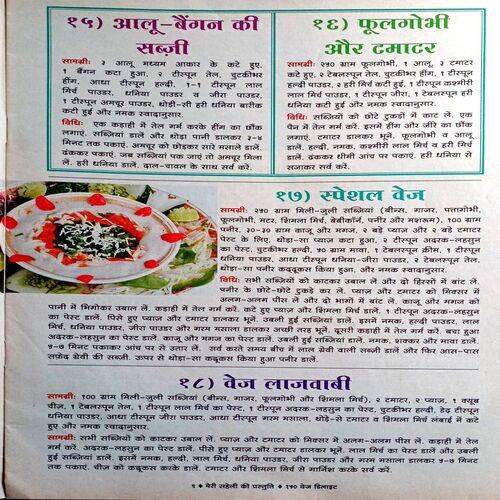 १५) आलू-बैंगन की
सब्ज़ी
सामग्री: ३ आलू मध्यम आकार के कटे हुए,
१ बैंगन कटा हुआ, २ टीस्पून तेल, चुटकीभर
हींग, आधा टीस्पून हल्दी, १-१ टीस्पून लाल
मिर्च पाउडर, धनिया पाउडर व जीरा पाउडर,
१ टीस्पून अमचूर पाउडर, थोड़ी-सी हरी धनिया बारीक
कटी हुई और नमक स्वादानुसार।
विधि: एक कड़ाही में तेल गर्म करके हींग का छौंक
लगाएं. सब्ज़ियां डालें और थोड़ा पानी डालकर ३-४
मिनट तक पकाएं. अमचूर को छोड़कर सारे मसाले डालें.
ढंककर पकाएं. जब सब्ज़ियां पक जाएं तो अमचूर मिला
लें. हरी धनिया डालें. दाल-चावल के साथ सर्व करें.
१६) फूलगोभी
और टमाटर
सामग्री: २५० ग्राम फूलगोभी, १ आलू, ३ टमाटर
कटे हुए, २ टेबलस्पून तेल, चुटकीभर हींग, १ टीस्पून
हल्दी पाउडर, २ हरी मिर्च कटी हुई, १ टीस्पून कश्मीरी
लाल मिर्च पाउडर, १ टीस्पून जीरा, १ टेबलस्पून हरी
धनिया कटी हुई और नमक स्वादानुसार.
विधि: सब्ज़ियों को छोटे टुकड़ों में काट लें. एक
पैन में तेल गर्म करें. इसमें हींग और जीरे का छौंक
लगाएं. टमाटर डालकर भूनें. फूलगोभी व आलू
डालें. हल्दी, नमक, कश्मीरी लाल मिर्च व हरी मिर्च
डालें. ढंककर धीमी आंच पर पकाएं. हरी धनिया से
सजाकर सर्व करें.
१७) स्पेशल वेज
सामग्री: २५० ग्राम मिली-जुली सब्ज़ियां (बीन्स, गाजर, पत्तागोभी,
फूलगोभी, मटर, शिमला मिर्च, बेबीकॉर्न, पनीर और मशरूम), १०० ग्राम
पनीर, ३०-३० ग्राम काजू और मगज, २ बड़े प्याज़ और २ बड़े टमाटर
पेस्ट के लिए, थोड़ा-सा प्याज़ कटा हुआ, २ टीस्पून अदरक-लहसुन
पेस्ट, चुटकीभर हल्दी, ५० ग्राम मावा, १ टेबलस्पून क्रीम, १ टीस्पून
धनिया पाउडर, आधा टीस्पून धनिया-जीरा पाउडर, २ टेबलस्पून तेल,
थोड़ा-सा पनीर कद्दूकस किया हुआ, और नमक स्वादानुसार.
विधि: सभी सब्ज़ियों को काटकर उबाल लें और दो हिस्सों में बांट लें.
पनीर के छोटे-छोटे टुकड़े कर लें. प्याज़ और टमाटर को मिक्सर में
अलग-अलग पीस लें और दो भागों में बांट लें. काजू और मगज को
पानी में भिगोकर उबाल लें. कड़ाही में तेल गर्म करें. कटे हुए प्याज़ और शिमला मिर्च डालें. १ टीस्पून अदरक-लहसुन
का पेस्ट डालें. पिसे हुए प्याज़ और टमाटर डालकर भून लें. उबली हुई सब्ज़ियां डालें. इसमें नमक, हल्दी पाउडर, लाल
मिर्च, धनिया पाउडर, जीरा पाउडर और गरम मसाला डालकर अच्छी तरह भूनें. दूसरी कड़ाही में तेल गर्म करें. बचा हुआ
अदरक-लहसुन पेस्ट डालें. काजू और मगज का पेस्ट डालें. उबली हुई सब्ज़ियां डालें. नमक, शक्कर और मावा डालें.
५-७ मिनट पकाकर आंच पर से उतार लें. सर्व करते समय बीच में लाल ग्रेवी वाली सब्ज़ी डालें और फिर आस-पास
सफ़ेद ग्रेवी की सब्ज़ी. ऊपर से थोड़ा-सा कद्दूकस किया हुआ पनीर डालें.
१८) वेज लाजवाबी
सामग्री: १०० ग्राम मिली-जुली सब्ज़ियां (बीन्स, गाजर, फूलगोभी और शिमला मिर्च), २ टमाटर, २ प्याज़, १ क्यूब
चीज़, १ टेबलस्पून तेल, १ टीस्पून लाल मिर्च का पेस्ट, १ टीस्पून अदरक-लहसुन का पेस्ट, चुटकीभर हल्दी, डेढ़ टीस्पून
धनिया पाउडर, आधा टीस्पून जीरा पाउडर, आधा टीस्पून गरम मसाला, थोड़े-से टमाटर व शिमला मिर्च लंबाई में कटे
हुए और नमक स्वादानुसार.
सामग्री: सभी सब्ज़ियों को काटकर उबाल लें. प्याज़ और टमाटर को मिक्सर में अलग-अलग पीस लें. कड़ाही में तेल
गर्म करें. अदरक-लहसुन का पेस्ट डालें. पिसे हुए प्याज़ और टमाटर डालकर भून लें. लाल मिर्च का पेस्ट डालें. उबली
हुई सब्ज़ियां डालें. इसमें नमक, हल्दी, लाल मिर्च, धनिया पाउडर, जीरा पाउडर और गरम मसाला डालकर ५-७ मिनट
तक पकाएं. चीज़ को कद्दूकस करके डालें. टमाटर और शिमला मिर्च से गार्निश करके सर्व करें.
९ ◆ मेरी सहेली की प्रस्तुति ◆ १५० वेज डिलाइट